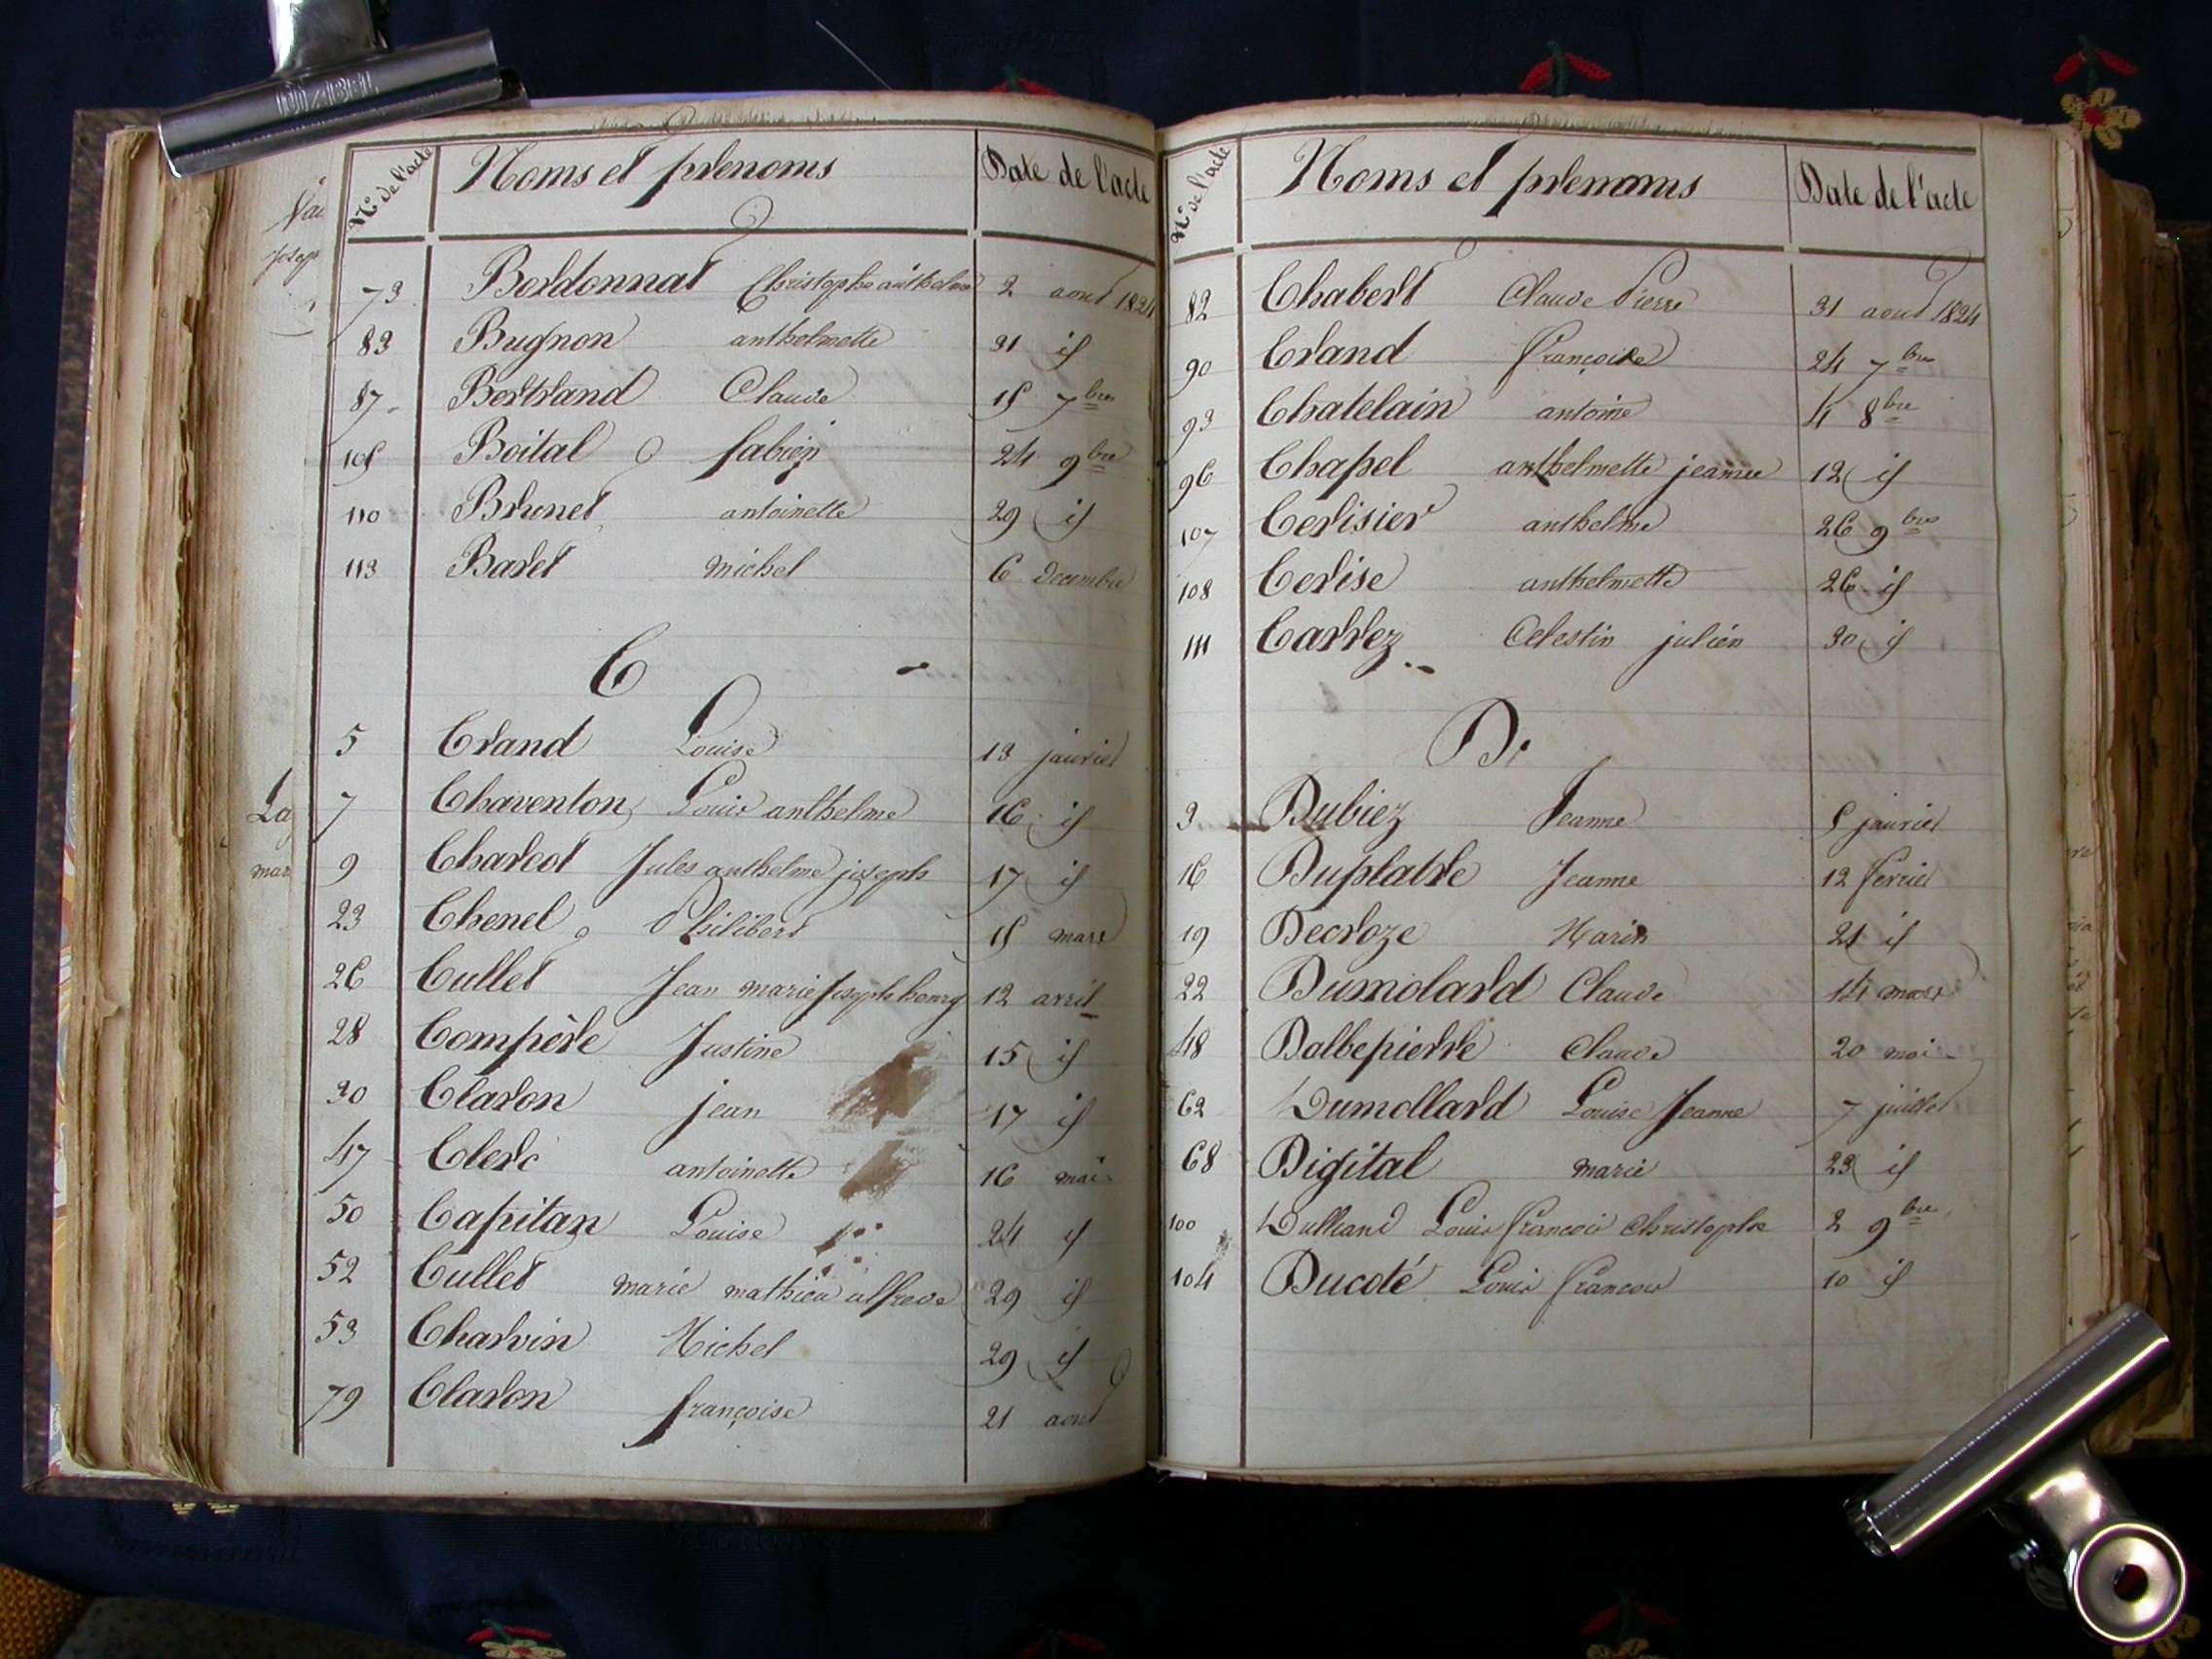 DIABEL
N.º de l'acte Noms et prenoms Date de l'acte
73 Bordonnat Christophe anthelme 2 aout 1824
83 Bugnon anthelmette 31 id
87 Bertrand Claude 15 7bre
105 Boital fabien 24 9bre
110 Brunet antoinette 29 id
113 Baret michel 6 decembre
C
5 Crand Louise 13 janvier
7 Chaventon Louis anthelme 16 id
9 Charcot Jules anthelme joseph 17 id
23 Chenel Philibert 15 mars
26 Cullet Jean marie Joseph 12 avril
28 Compère Justine 15 id
30 Claron jean 17 id
47 Clerc antoinette 16 mai
50 Capitan Louise 24 id
52 Cullet marie mathieu alfrede 29 id
53 Charvin Michel 29 id
79 Claron françoise 21 aout
N.º de l'acte Noms et prenoms Date de l'acte
82 Chabert Claude Pierre 31 aout 1824
90 Crand françoise 24 7bre
93 Chatelain antoine 4 8bre
96 Chapel anthelmette jeanne 12 id
107 Cerisier anthelme 26 9bre
108 Cerise anthelmette 26 id
111 Carrez Celestin julien 30 id
D.
3 Dubiez Jeanne 5 janvier
16 Duplatre Jeanne 12 fevrier
19 Decroze Marin 21 id
22 Dumolard Claude 14 mars
48 Dalbepierre Claude 20 mai
62 Dumollard Louise Jeanne 7 juillet
68 Digital marie 23 id
100 Louis françois Christophe 2 9bre
104 Ducoté Louis françois 10 id